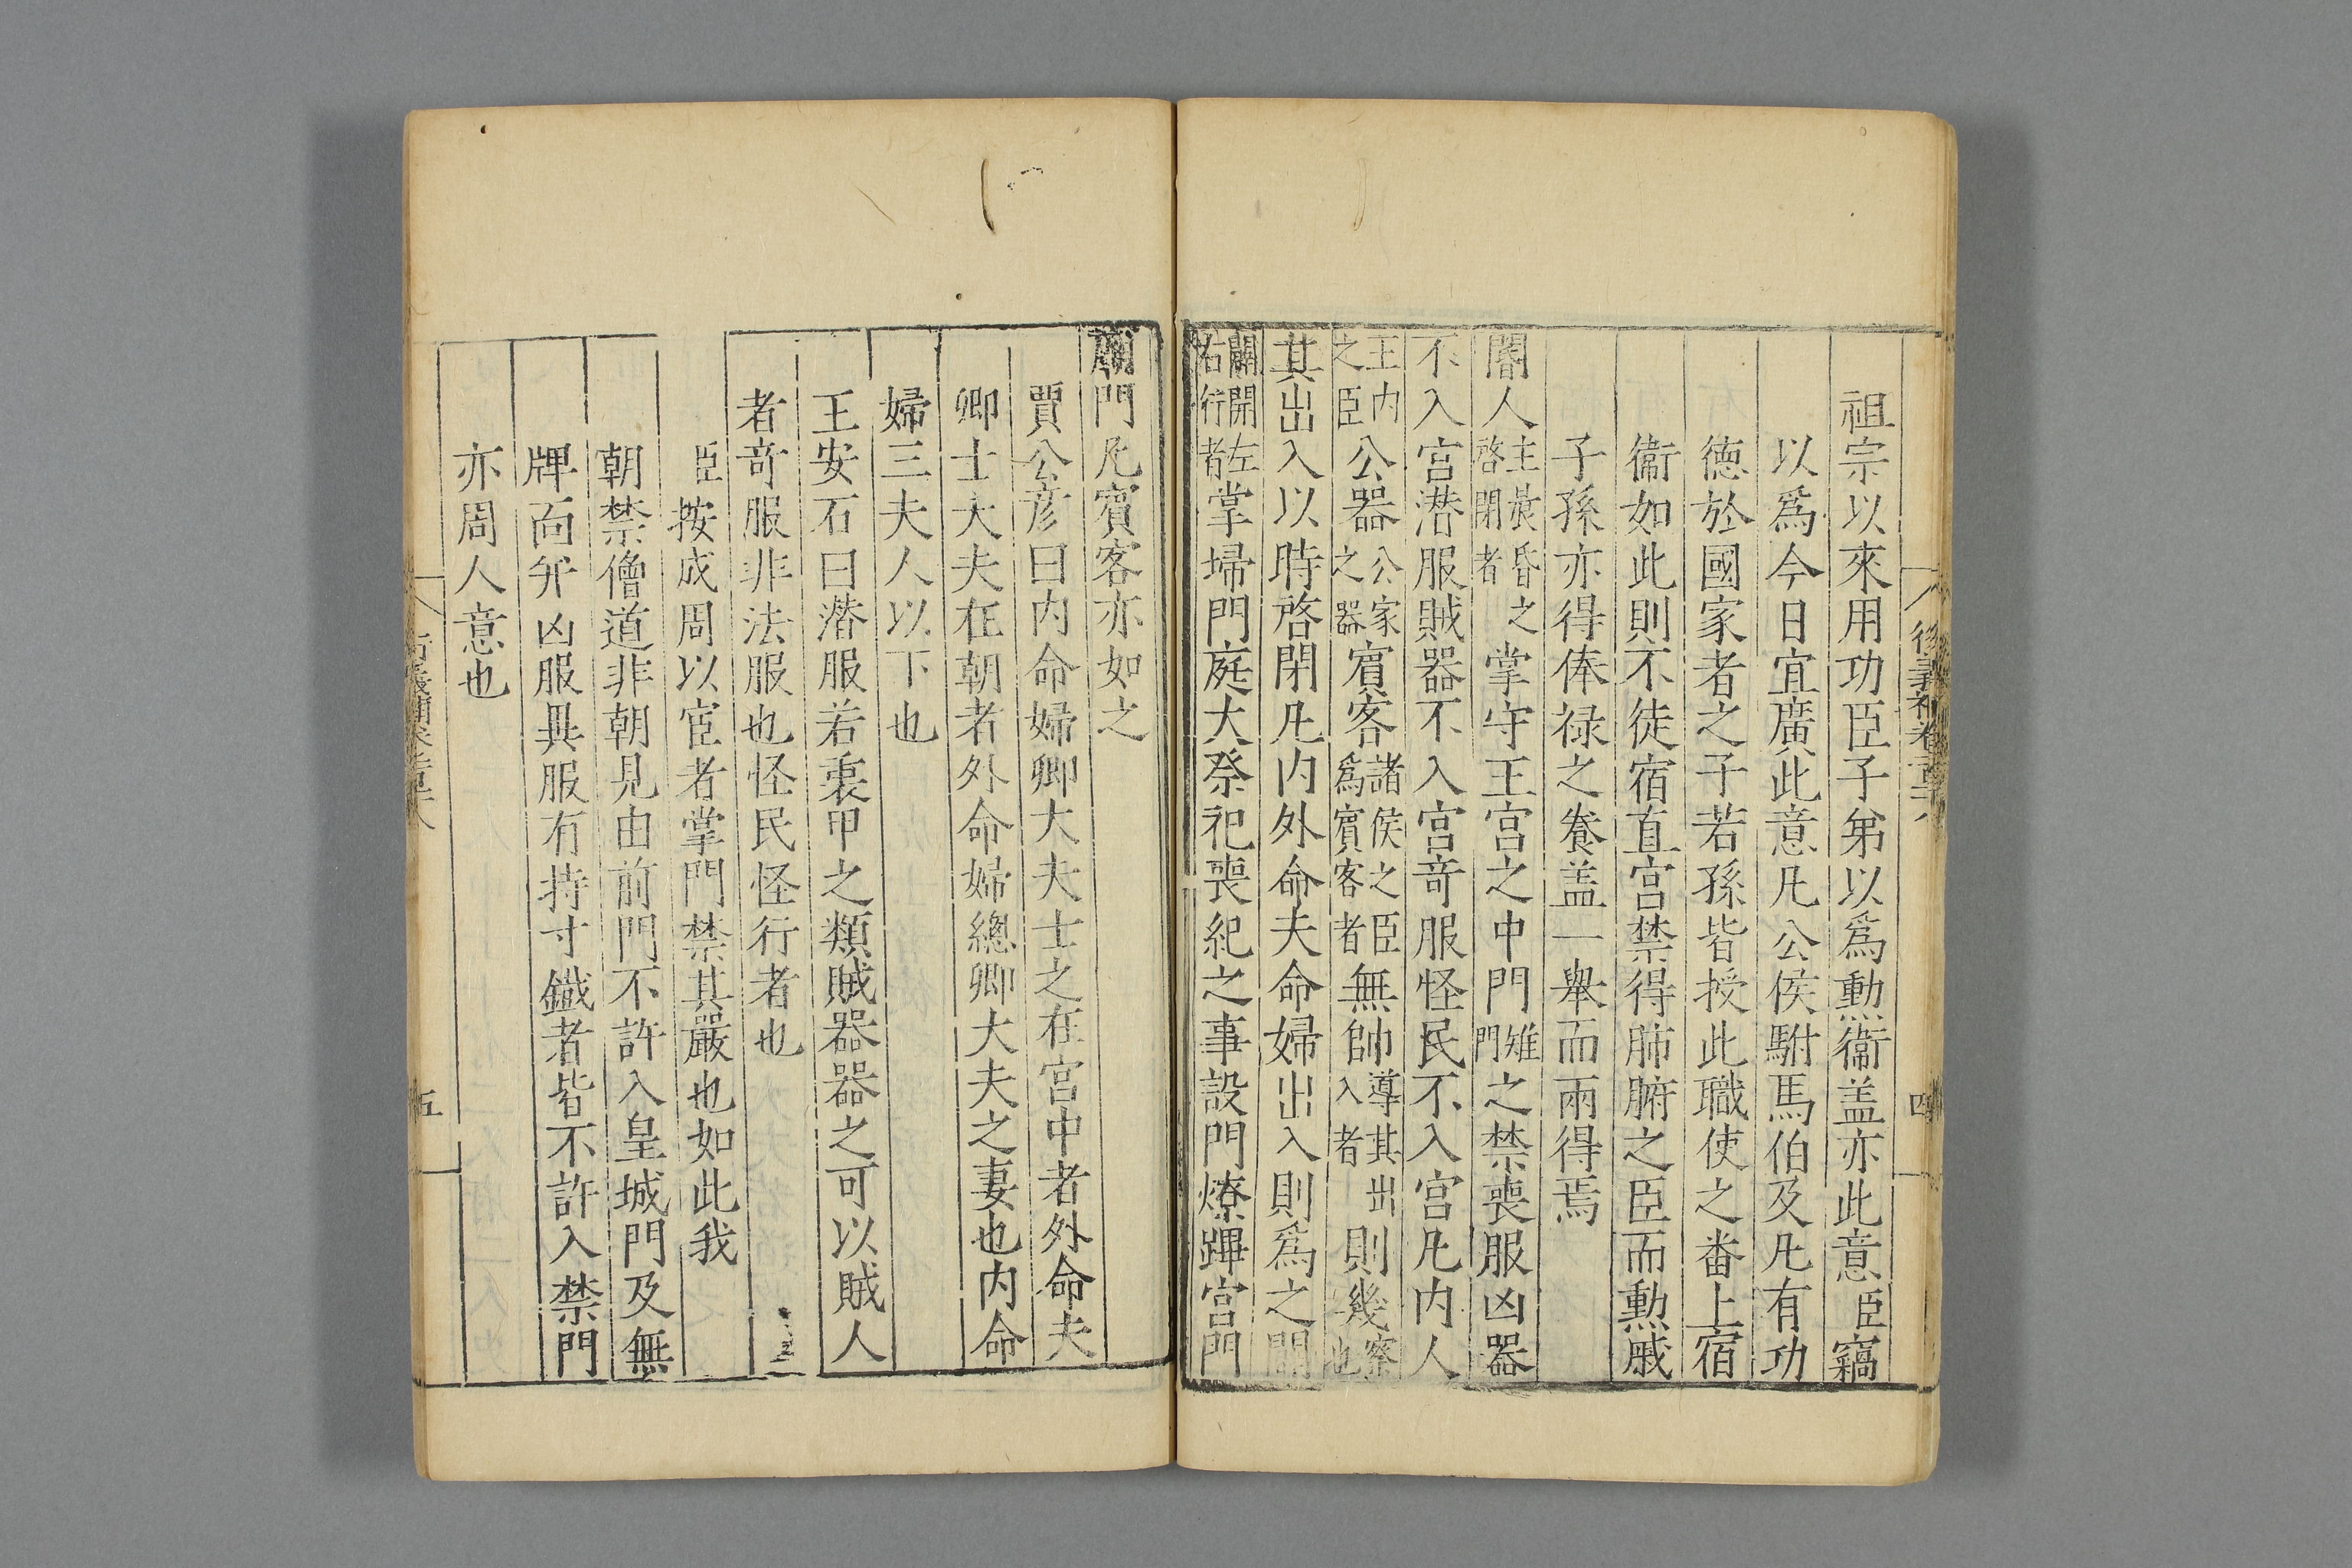 祖宗以來用功臣子弟以爲勳衞盖亦此意臣竊
以爲今日宜廣此意凡公侯駙馬伯及凡有功
德於國家者之子若孫皆授此職使之畨上宿
衞如此則不徒宿直宫禁得肺腑之臣而勳戚
子孫亦得俸禄之養盖一舉而兩得焉
閽人主晨昏之啓閉者掌守王宫之中門雉門之禁喪服凶器
不入宫潛服賊器不入宫奇服怪民不入宫凡内人
王内之臣公器公家之器賓客諸侯之臣爲賓客者無帥導其出入者則幾察也
其出入以時啓閉凡内外命夫命婦出入則爲之闢
闢開左右行者掌埽門庭大祭祀喪紀之事設門燎蹕宫門
廟門凡賓客亦如之
賈公彦曰内命婦卿大夫士之在宫中者外命夫
卿士大夫在朝者外命婦總卿大夫之妻也内命
婦三夫人以下也
王安石曰潛服若衷甲之類賊器器之可以賊人
者奇服非法服也怪民怪行者也
臣按成周以宦者掌門禁其嚴也如此我
朝禁僧道非朝見由前門不許入皇城門及無
牌面并凶服異服有持寸鐡者皆不許入禁門
亦周人意也
五